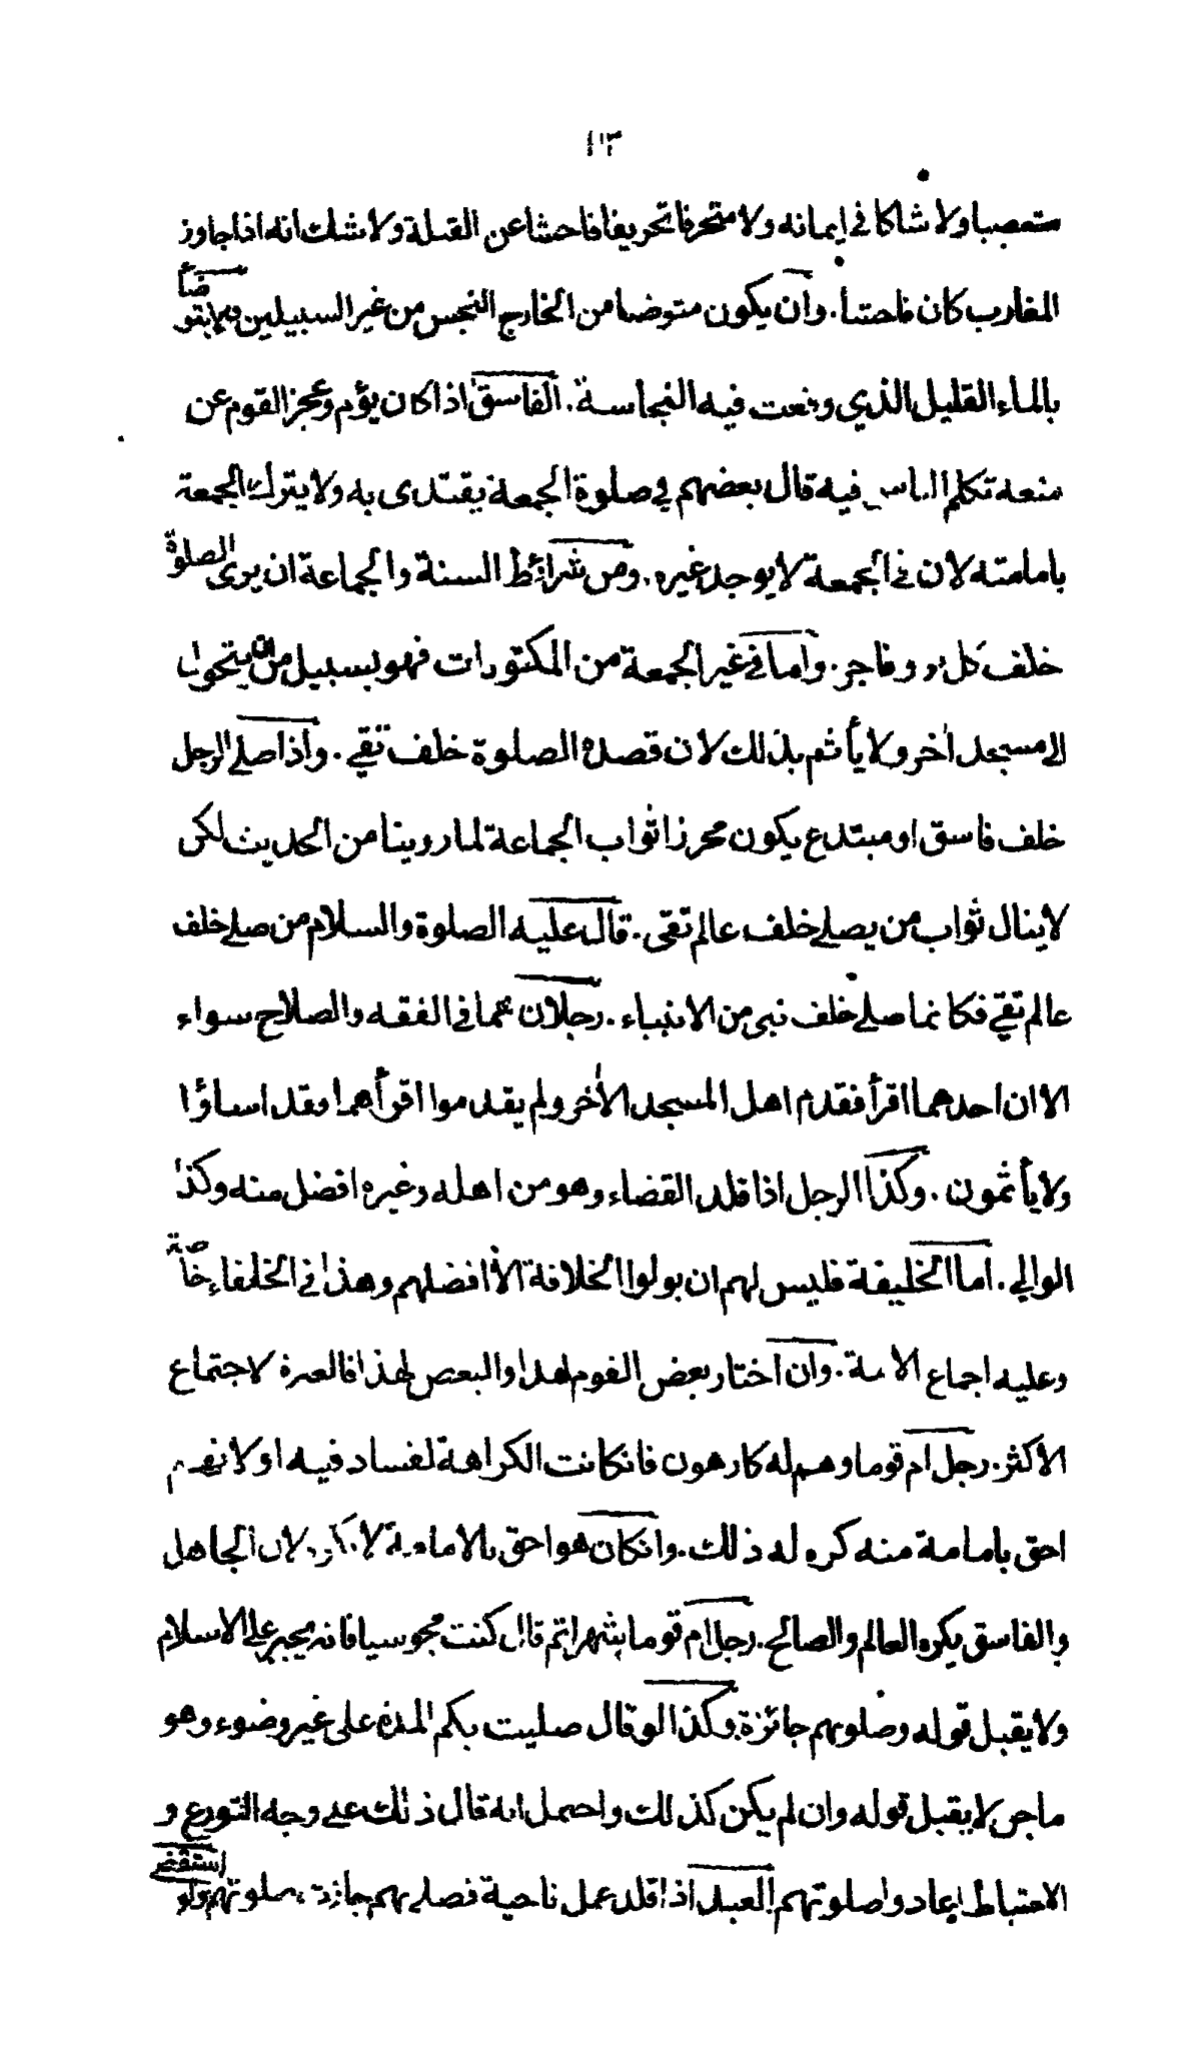 ١١٣
متعصبا ولا شاكا في ايمانه ولا متحرفا تحريفا فاحشا عن القبلة ولا شك انه اذا جاوز
المغارب كان فاحشا. وان يكون متوضيا من الخارج النجس من غير السبيلين ولا يتوضأ
بالماء القليل الذي وقعت فيه النجاسة. الفاسق اذا كان يؤم وعجز القوم عن
منعه تكلم الناس فيه قال بعضهم في صلوة الجمعة يقتدى به ولا يترك الجمعة
بامامته لان في الجمعة لا يوجد غيره. ومن شرائط السنة والجماعة ان يرى الصلوة
خلف كل بر وفاجر. واما في غير الجمعة من المكتوبات فهو بسبيل من ان يتحول
الى مسجد اخر ولا يأثم بذلك لان قصده الصلوة خلف تقي. واذا صلى الرجل
خلف فاسق او مبتدع يكون محرزا ثواب الجماعة لما روينا من الحديث لكن
لا ينال ثواب من يصلى خلف عالم تقى. قال عليه الصلوة والسلام من صلى خلف
عالم تقي فكانما صلى خلف نبي من الانبياء. رجلان هما في الفقه والصلاح سواء
الا ان احدهما اقرأ فقدم اهل المسجد الأخر ولم يقدموا اقرأهما فقد اساؤا
ولا يأثمون. وكذا الرجل اذا قلد القضاء وهو من اهله وغيره افضل منه وكذا
الوالي. اما الخليفة فليس لهم ان يولوا الخلافة الا افضلهم وهذا في الخلفاء خاصة
وعليه اجماع الامة. وان اختار بعض القوم لهذا والبعض لهذا فالعبرة لاجتماع
الاكثر. رجل ام قوما وهم له كارهون فانكانت الكراهة لفساد فيه او لانهم
احق بامامة منه كره له ذلك. وانكان هو احق بالامامة لا يكره لان الجاهل
والفاسق يكره العالم والصالح. رجل ام قوما شهرا ثم قال كنت مجوسيا فانه يجبر على الاسلام
ولا يقبل قوله وصلوتهم جائزة. وكذا لو قال صليت بكم المدة على غير وضوء وهو
ماجن لا يقبل قوله وان لم يكن كذلك واحتمل انه قال ذلك على وجه التورع و
الاحتياط اعادوا صلوتهم. العبد اذا قلد عمل ناحية فصلى بهم جازت صلوتهم ولو استقضى